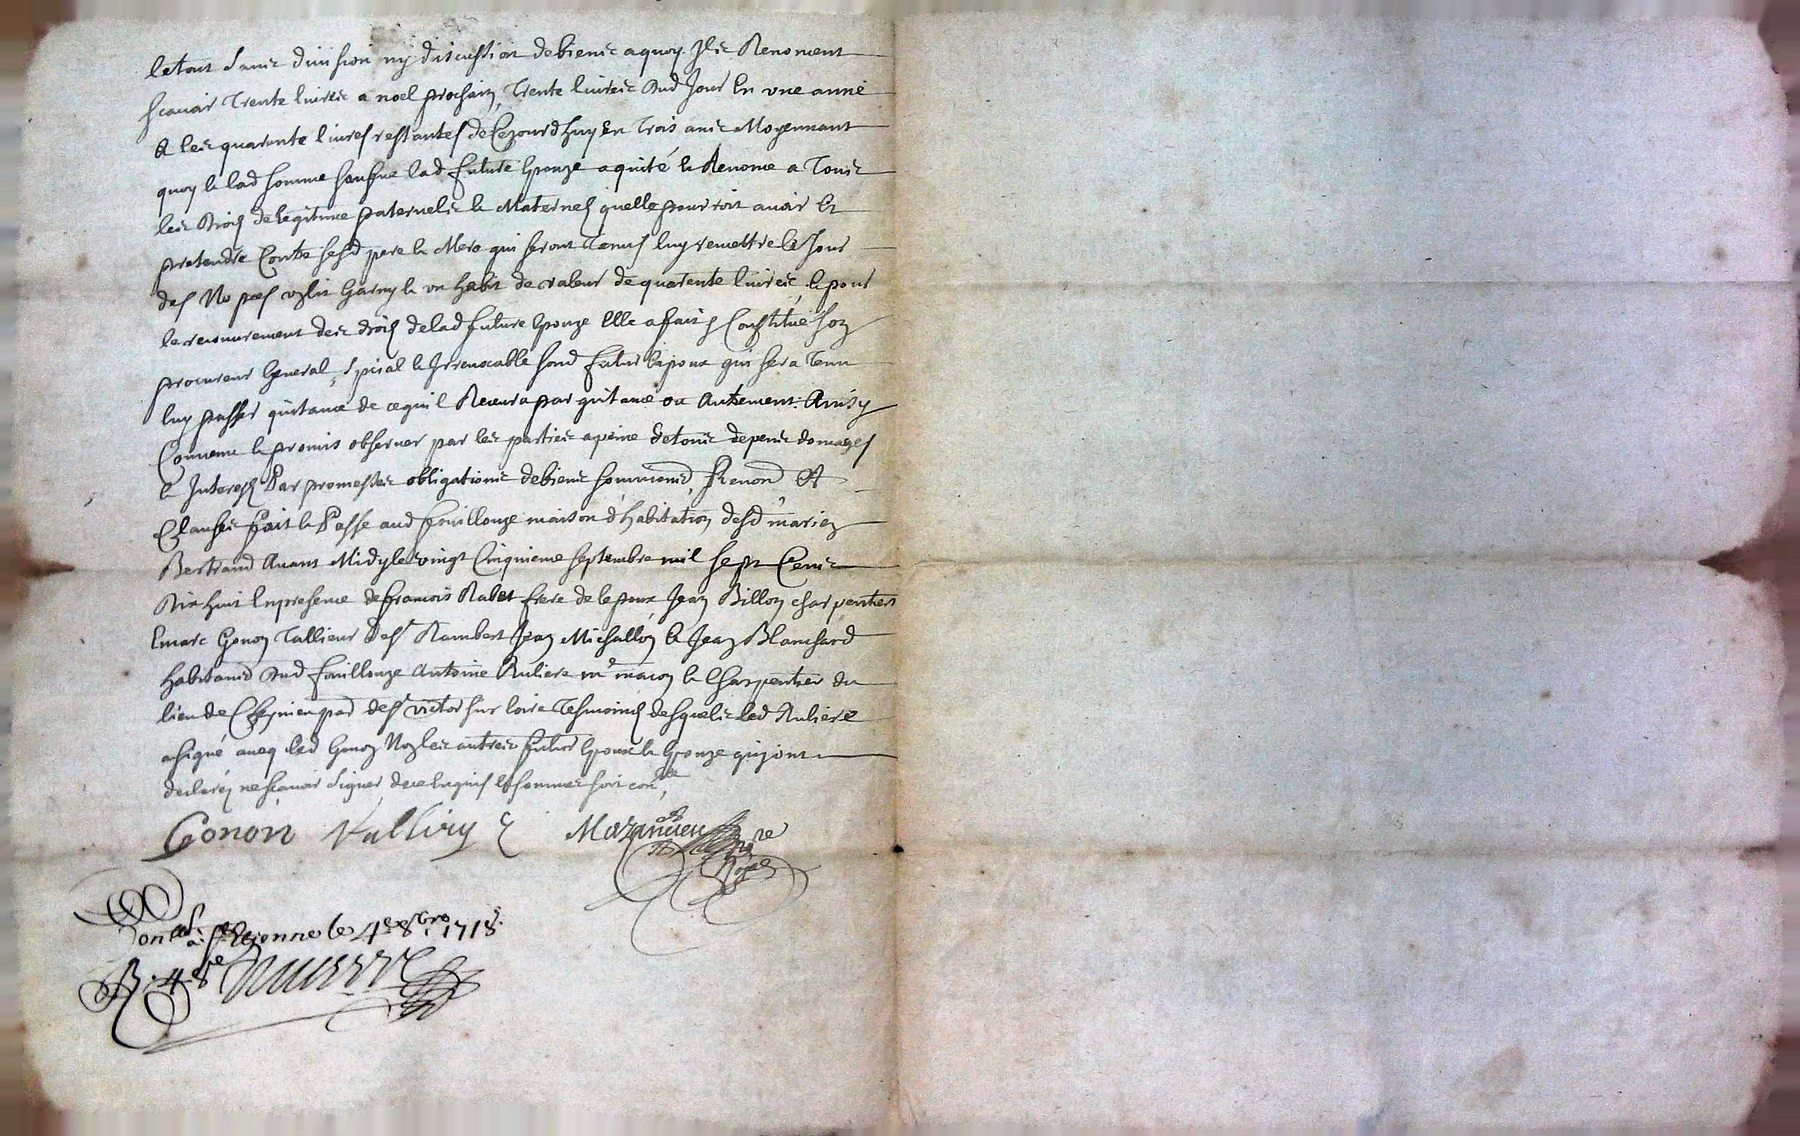 le tout sans division ny discussion de biens a quoy Ils Renoncent
scavoir Trente livres a noel prochain, Trente livres aud Jour En une anné
& les quarente livres restantes de Cejourdhuy En Trois ans Moyennant
quoy & lad somme future lad future Epouze a quité & Renonce a Tous
les Droits de legitime paternels & Maternels quelle pourroit avoir Et
pretendre Contre sesd pere & Mere qui seront Tenus luy remettre le Jour
des Nopces un lit Garny & un habit de valeur de quarente livres & pour
le recouvrement des droits de lad future Epouze Elle a fait & Constitué son
procureur General, special & Irrevocable sond futur Epoux qui sera Tenu
luy passer quitance de ce quil Recevra par quitance ou Autrement. Ainsy
Convenu & promis observer par les parties a peine de tous depens domages
& Interests Par promesses obligations de biens soummond, Renond Et
Clauses fait & Passé aud fouillouze maison d'habitation desd mariez
Bertrand Avant Midy le vingt Cinquieme septembre mil sept Cens
Dix huit En presence de francois Rabet frere de lepoux Jean Billon charpentiers
Emarc Gonon Tallieur de St Rambert Jean Michallon & Jean Blanchard
habitans aud fouillouze Antoine Ruliere me macon & Charpentier du
lieu de parr de St victor sur loire Tesmoins desquels led Ruliere
a signé avec led Gonon Non les autres futur Epoux & Epouze qui ont
declaré ne scavoir signer de ce Enquis & sommes soit con.lé
Gonon Valliry Mazancieu
Nore Royal
Conllé a St Etienne le 4e 8bre 1718.
R. 4s